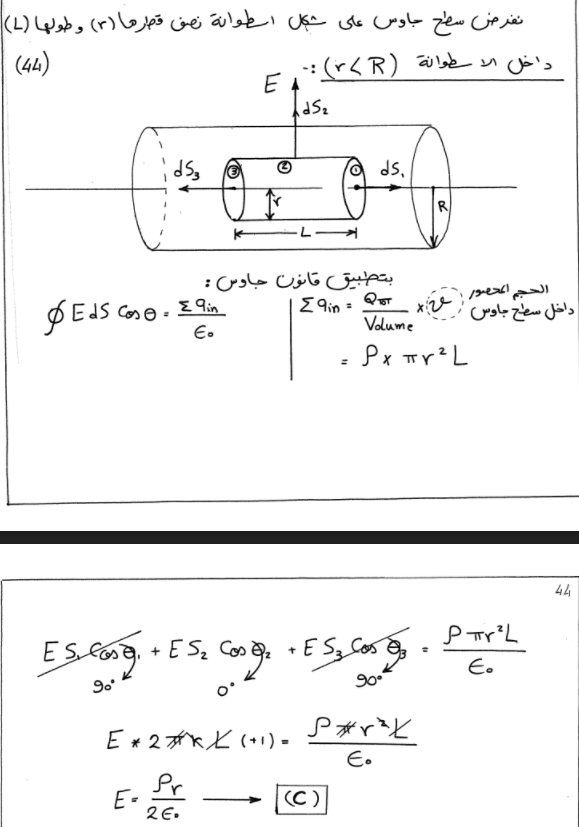 نفرض سطح جاوس على شكل اسطوانة نصف قطرها (r) وطولها (L)
(44)
داخل الاسطوانة (r < R) :-
E
dS₂
③ ② ①
dS₃ dS₁
r
R
L
بتطبيق قانون جاوس :
∮ E dS Cos θ = Σ qin / ε₀
Σ qin = Q / Volume × الحجم المحصور داخل سطح جاوس
= ρ × π r² L
44
E S₁ Cos θ₁ + E S₂ Cos θ₂ + E S₃ Cos θ₃ = ρ π r² L / ε₀
90° 0° 90°
E * 2 π r L (+1) = ρ π r² L / ε₀
E = ρ r / 2 ε₀ → (C)